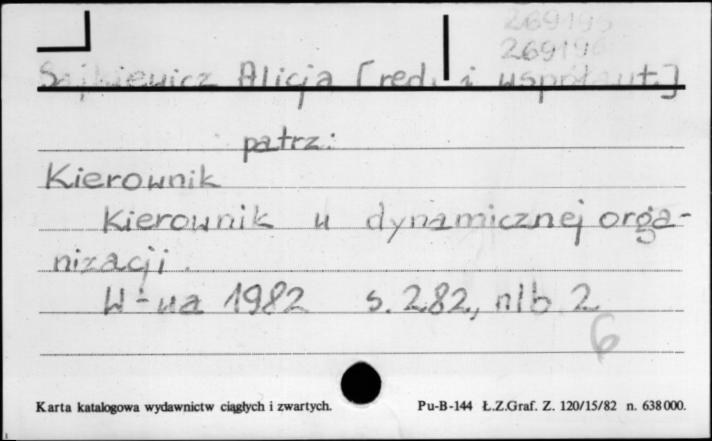 269195
26919
Sajkiewicz Alicja [red. i współaut.]
patrz:
Kierownik
Kierownik w dynamicznej orga-
nizacji.
W-wa 1982 s. 282, nlb 2
6
Karta katalogowa wydawnictw ciągłych i zwartych.
Pu-B-144 Ł.Z.Graf. Z. 120/15/82 n. 638000.